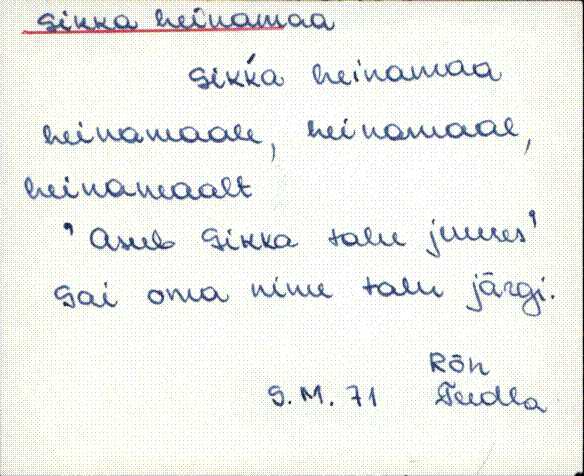 Sikka heinamaa
Sikḱa heinamaa
heinamaale, heinamaal,
heinamaalt
'Asub Sikka talu juures'
Sai oma nime talu järgi.
Rõn
S.M. 71 Teedla